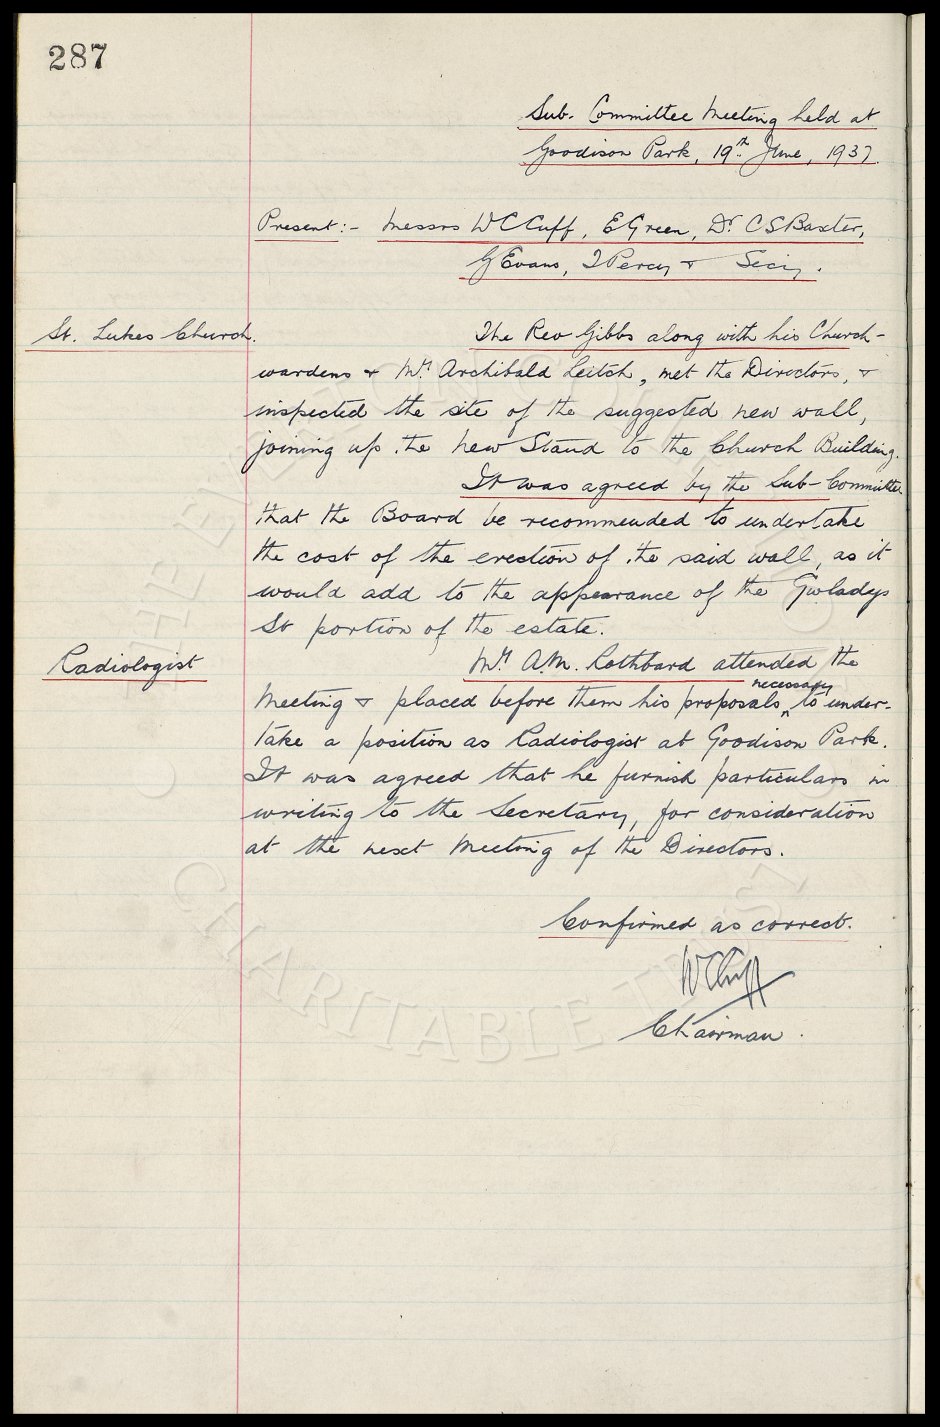 287
Sub. Committee Meeting held at
Goodison Park, 19th June, 1937.
Present:- Messrs W C Cuff, E Green, Dr. C S Baxter,
G Evans, T Percy & Secy.
St. Lukes Church.
The Rev Gibbs along with his Church-
wardens & Mr. Archibald Leitch, met the Directors, &
inspected the site of the suggested new wall,
joining up the new Stand to the Church Building.
It was agreed by the Sub-Committee
that the Board be recommended to undertake
the cost of the erection of the said wall, as it
would add to the appearance of the Gwladys
St portion of the estate.
Radiologist
Mr. A.M. Rothbard attended the
necessary
Meeting & placed before them his proposals ^ to under-
take a position as Radiologist at Goodison Park.
It was agreed that he furnish particulars in
writing to the Secretary, for consideration
at the next Meeting of the Directors.
Confirmed as correct.
W C Cuff
Chairman.
CHARITABLE